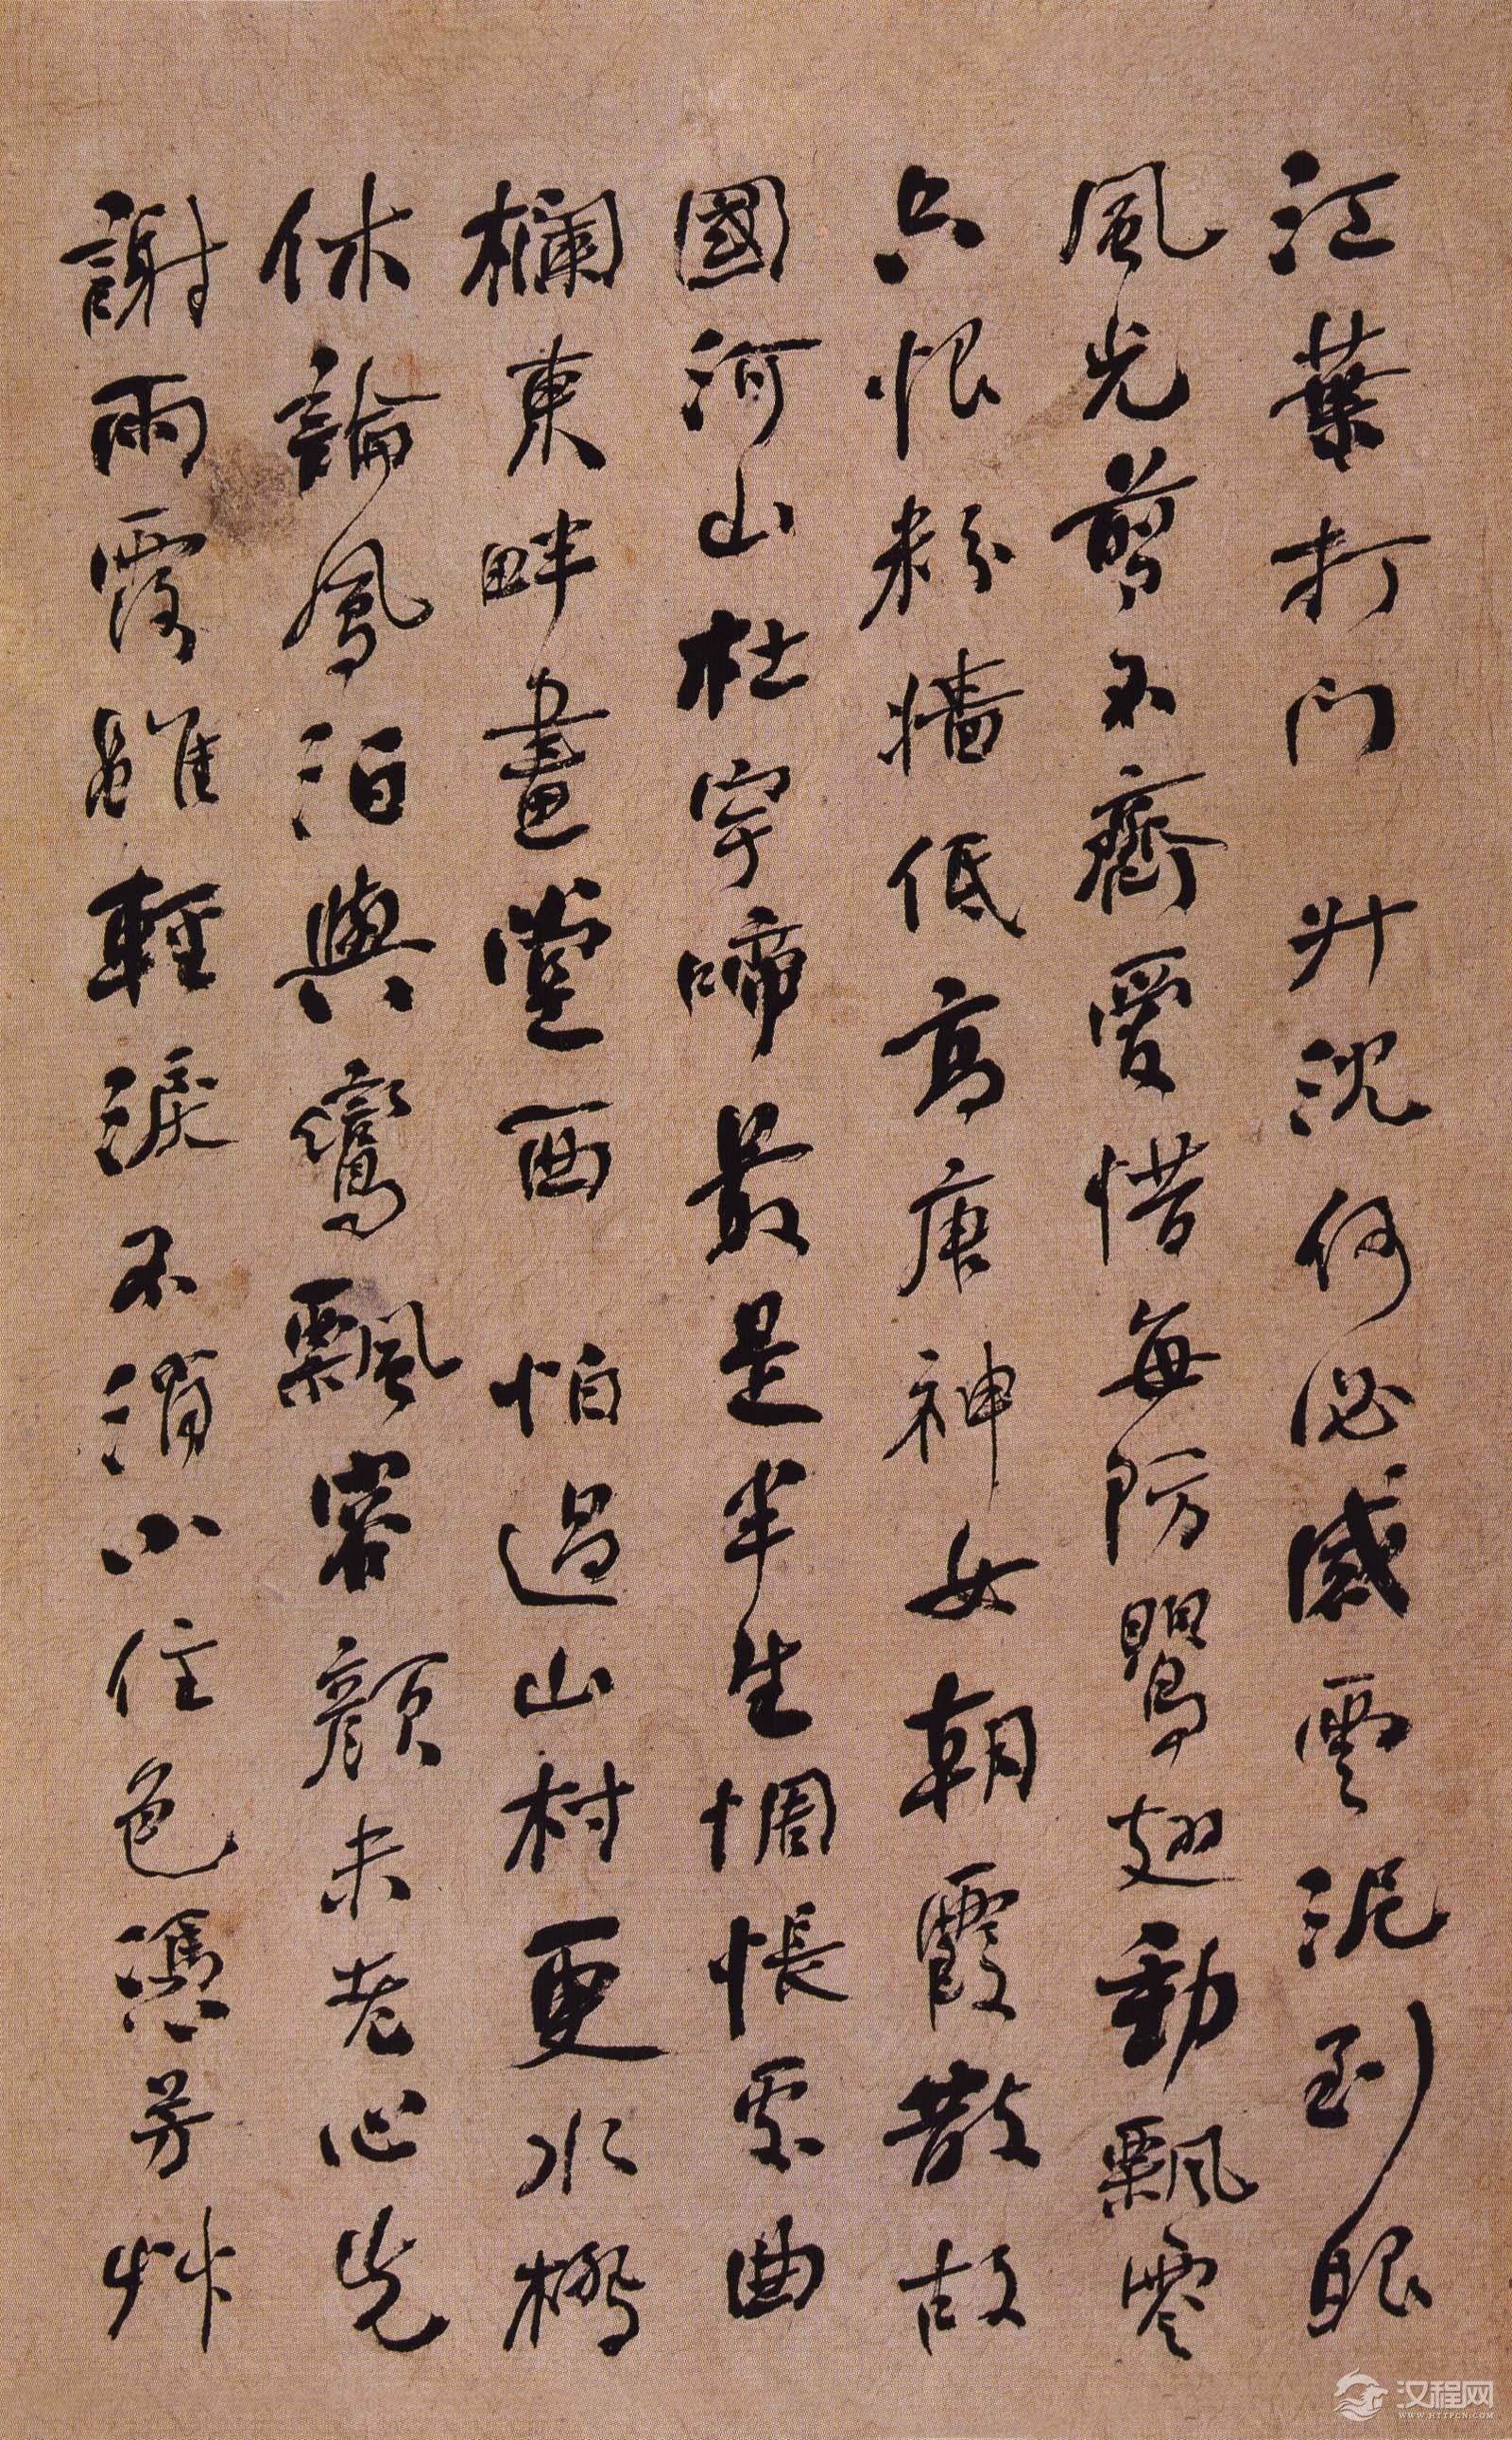 江葉打门 升沈何必感雲泥到眼
風光剪不齊愛惜每防鸎翅動飄零
只恨粉牆低高唐神女朝霞散故
國河山杜宇啼最是半生惆悵處曲
欄東畔畫堂西 怕過山村更水橋
休論鳳泊與鸞飄容顏未老心先
謝雨露雖輕淚不消小住色憑芳艸
汉程网
WWW.HTTPCN.COM